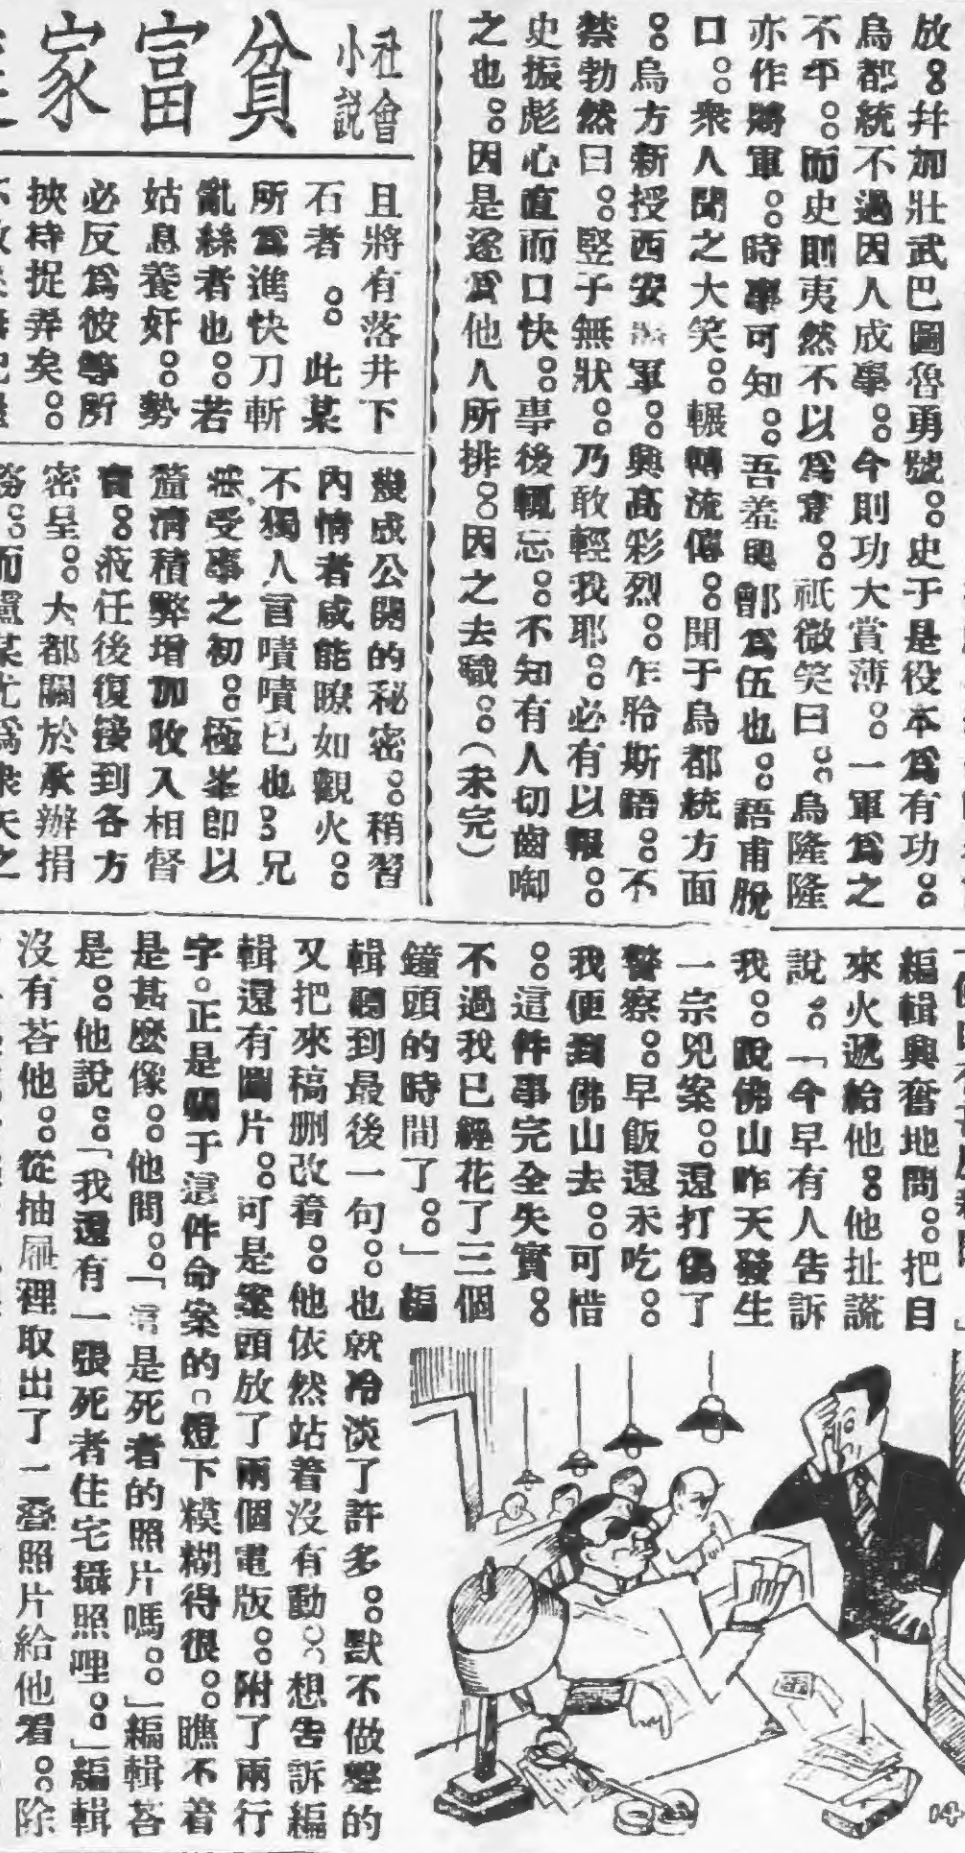 放。幷加壯武巴圖魯勇號。史于是役本爲有功。
烏都統不過因人成事。今則功大賞薄。一軍爲之
不平。而史則夷然不以爲意。祇微笑曰。烏隆隆
亦作將軍。時事可知。吾羞與鄫爲伍也。語甫脫
口。衆人聞之大笑。輾轉流傳。聞于烏都統方面
。烏方新授西安將軍。興高彩烈。乍聆斯語。不
禁勃然曰。竪子無狀。乃敢輕我耶。必有以報。
史振彪心直而口快。事後輒忘。不知有人切齒啣
之也。因是遂爲他人所排。因之去職。（未完）
社會
小説
貧富家
且將有落井下
石者。此某
所爲進快刀斬
亂絲者也。若
姑息養奸。勢
必反爲彼等所
挾持捉弄矣。
幾成公開的秘密。稍習
內情者咸能瞭如觀火。
不獨人言嘖嘖已也。兄
受事之初。極峯卽以
釐淸積弊增加收入相督
責。蒞任後復接到各方
密呈。大都關於承辦捐
務。而盧某尤爲衆矢之
編輯興奮地問。把自
來火遞給他。他扯謊
說。「今早有人告訴
我。說佛山昨天發生
一宗兇案。還打傷了
警察。早飯還未吃。
我便到佛山去。可惜
。這件事完全失實。
不過我已經花了三個
鐘頭的時間了。」編
輯聽到最後一句。也就冷淡了許多。默不做聲的
又把來稿删改着。他依然站着沒有動。想告訴編
輯還有圖片。可是案頭放了兩個電版。附了兩行
字。正是關于這件命案的。燈下糢糊得很。瞧不着
是甚麼像。他問。「這是死者的照片嗎。」編輯荅
是。他說。「我還有一張死者住宅攝照哩。」編輯
沒有荅他。從抽屜裡取出了一叠照片給他看。除